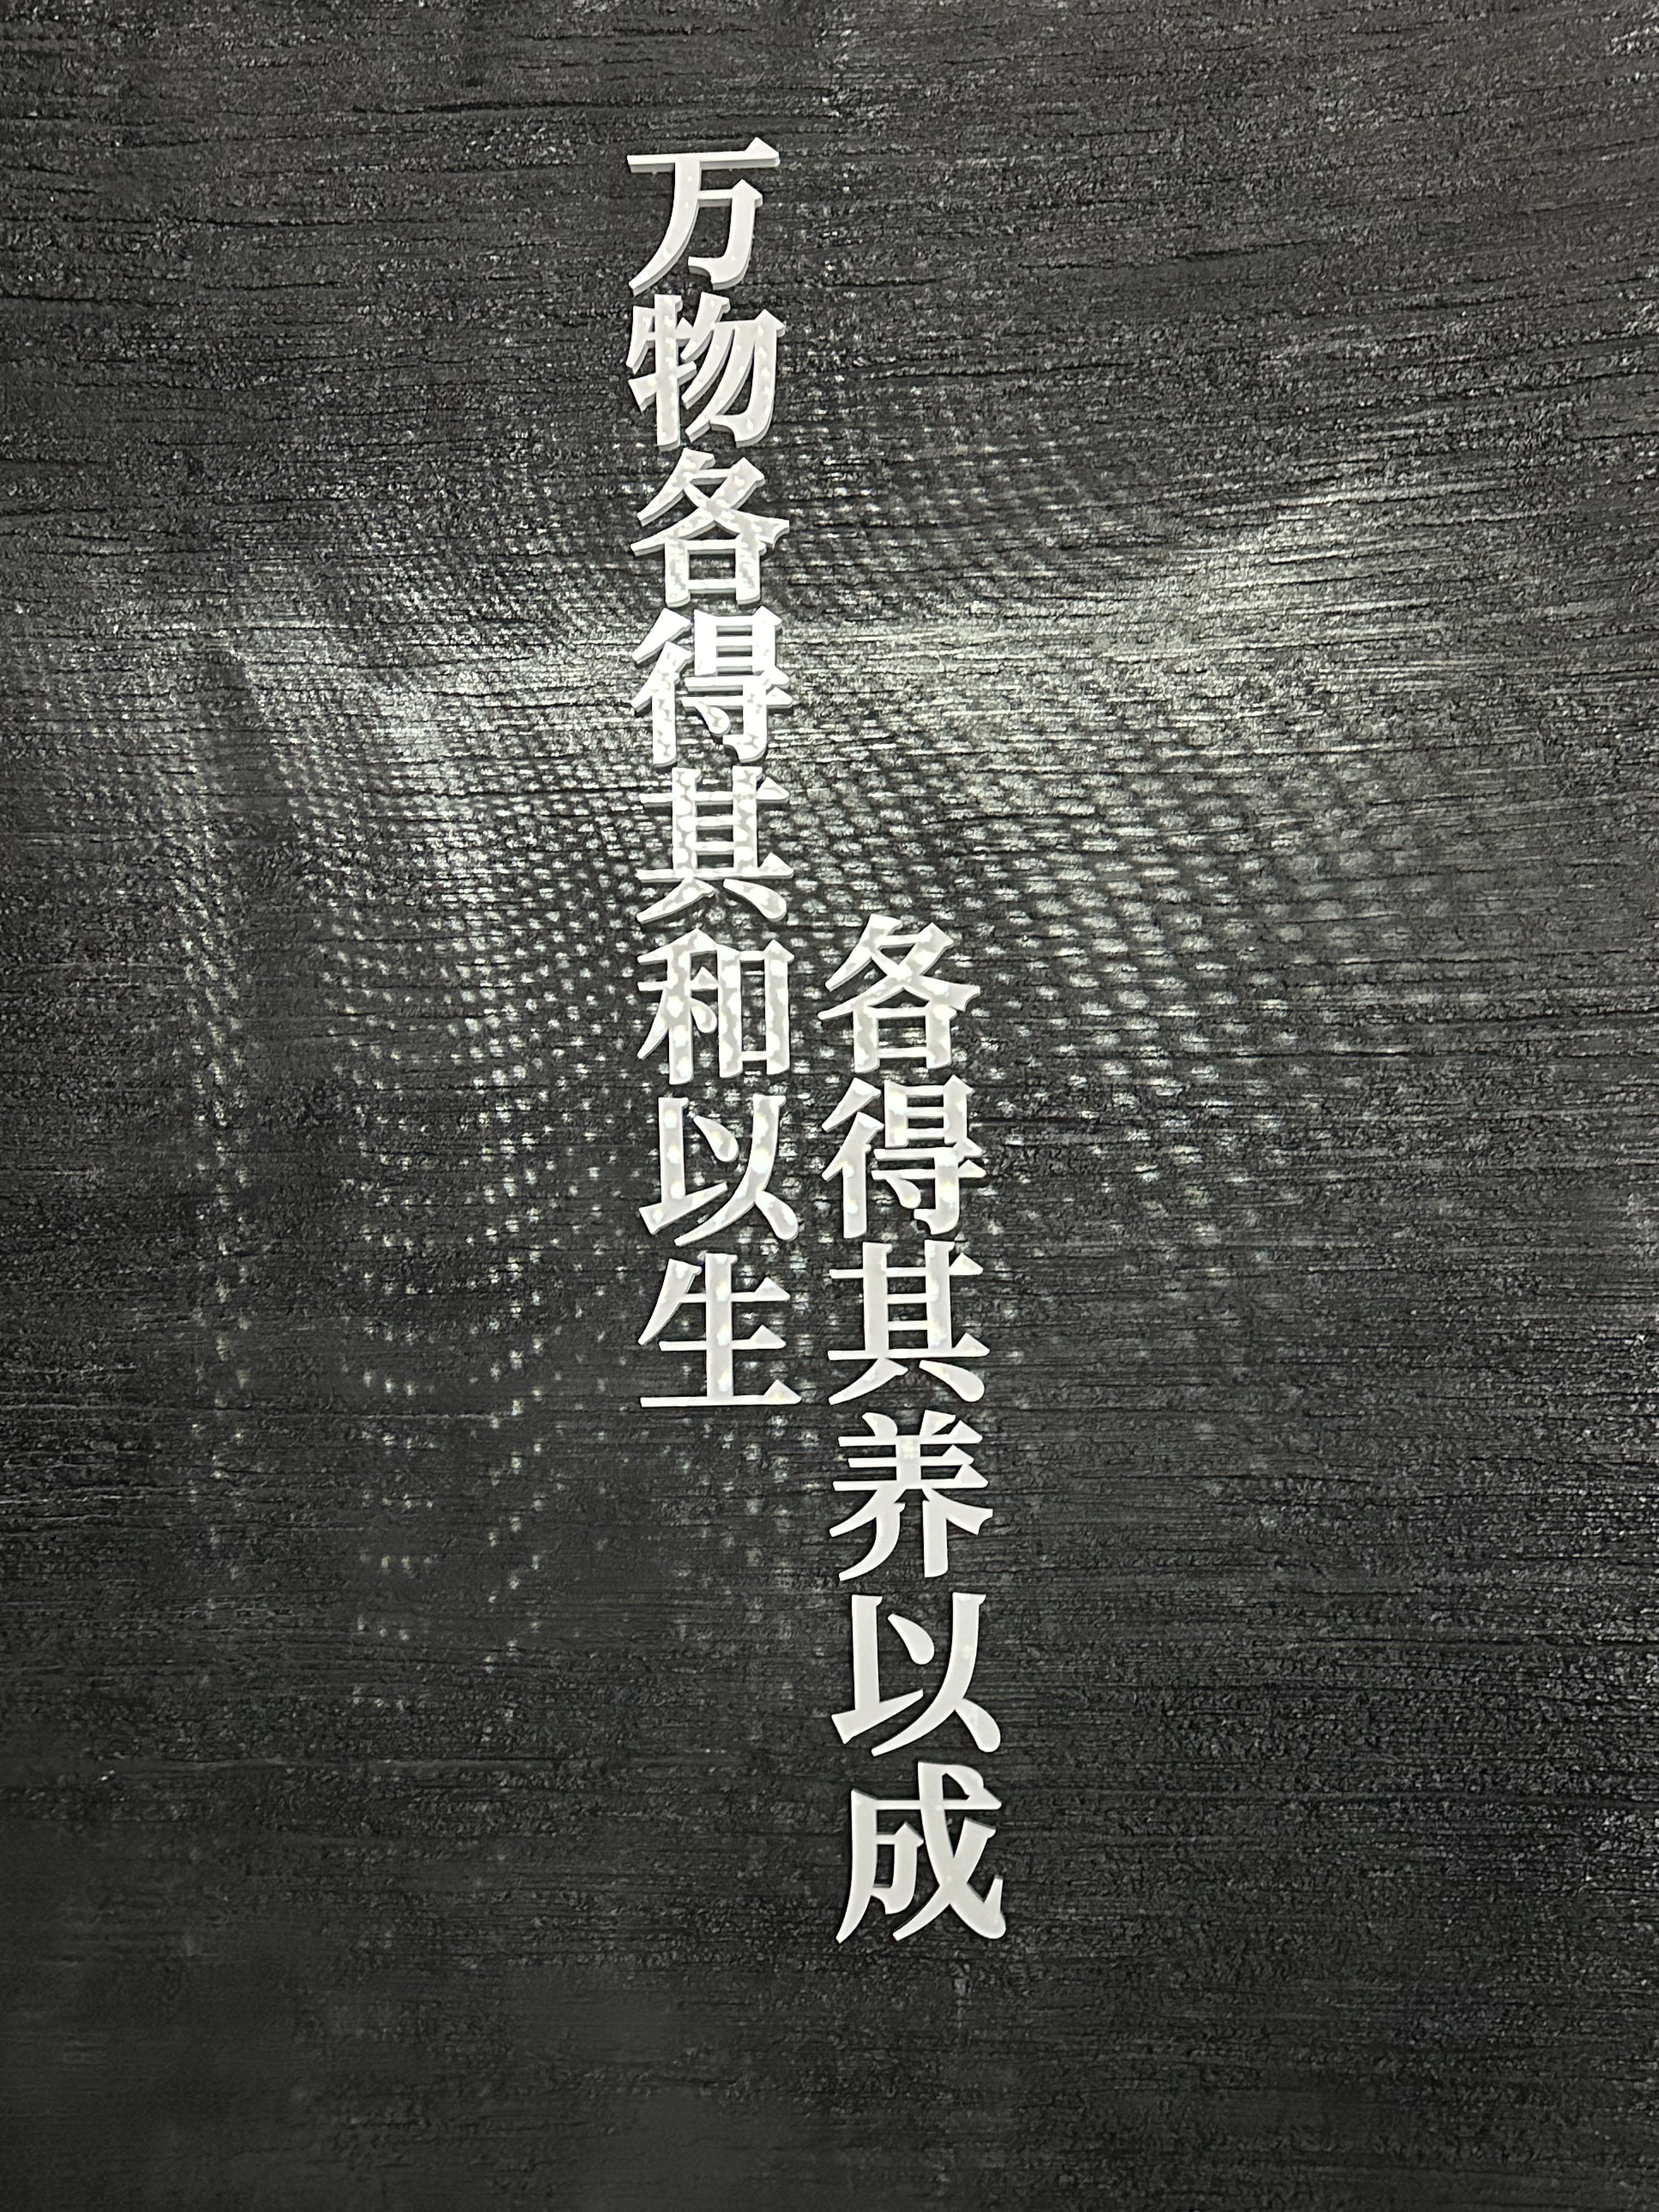 万物各得其和以生
各得其养以成